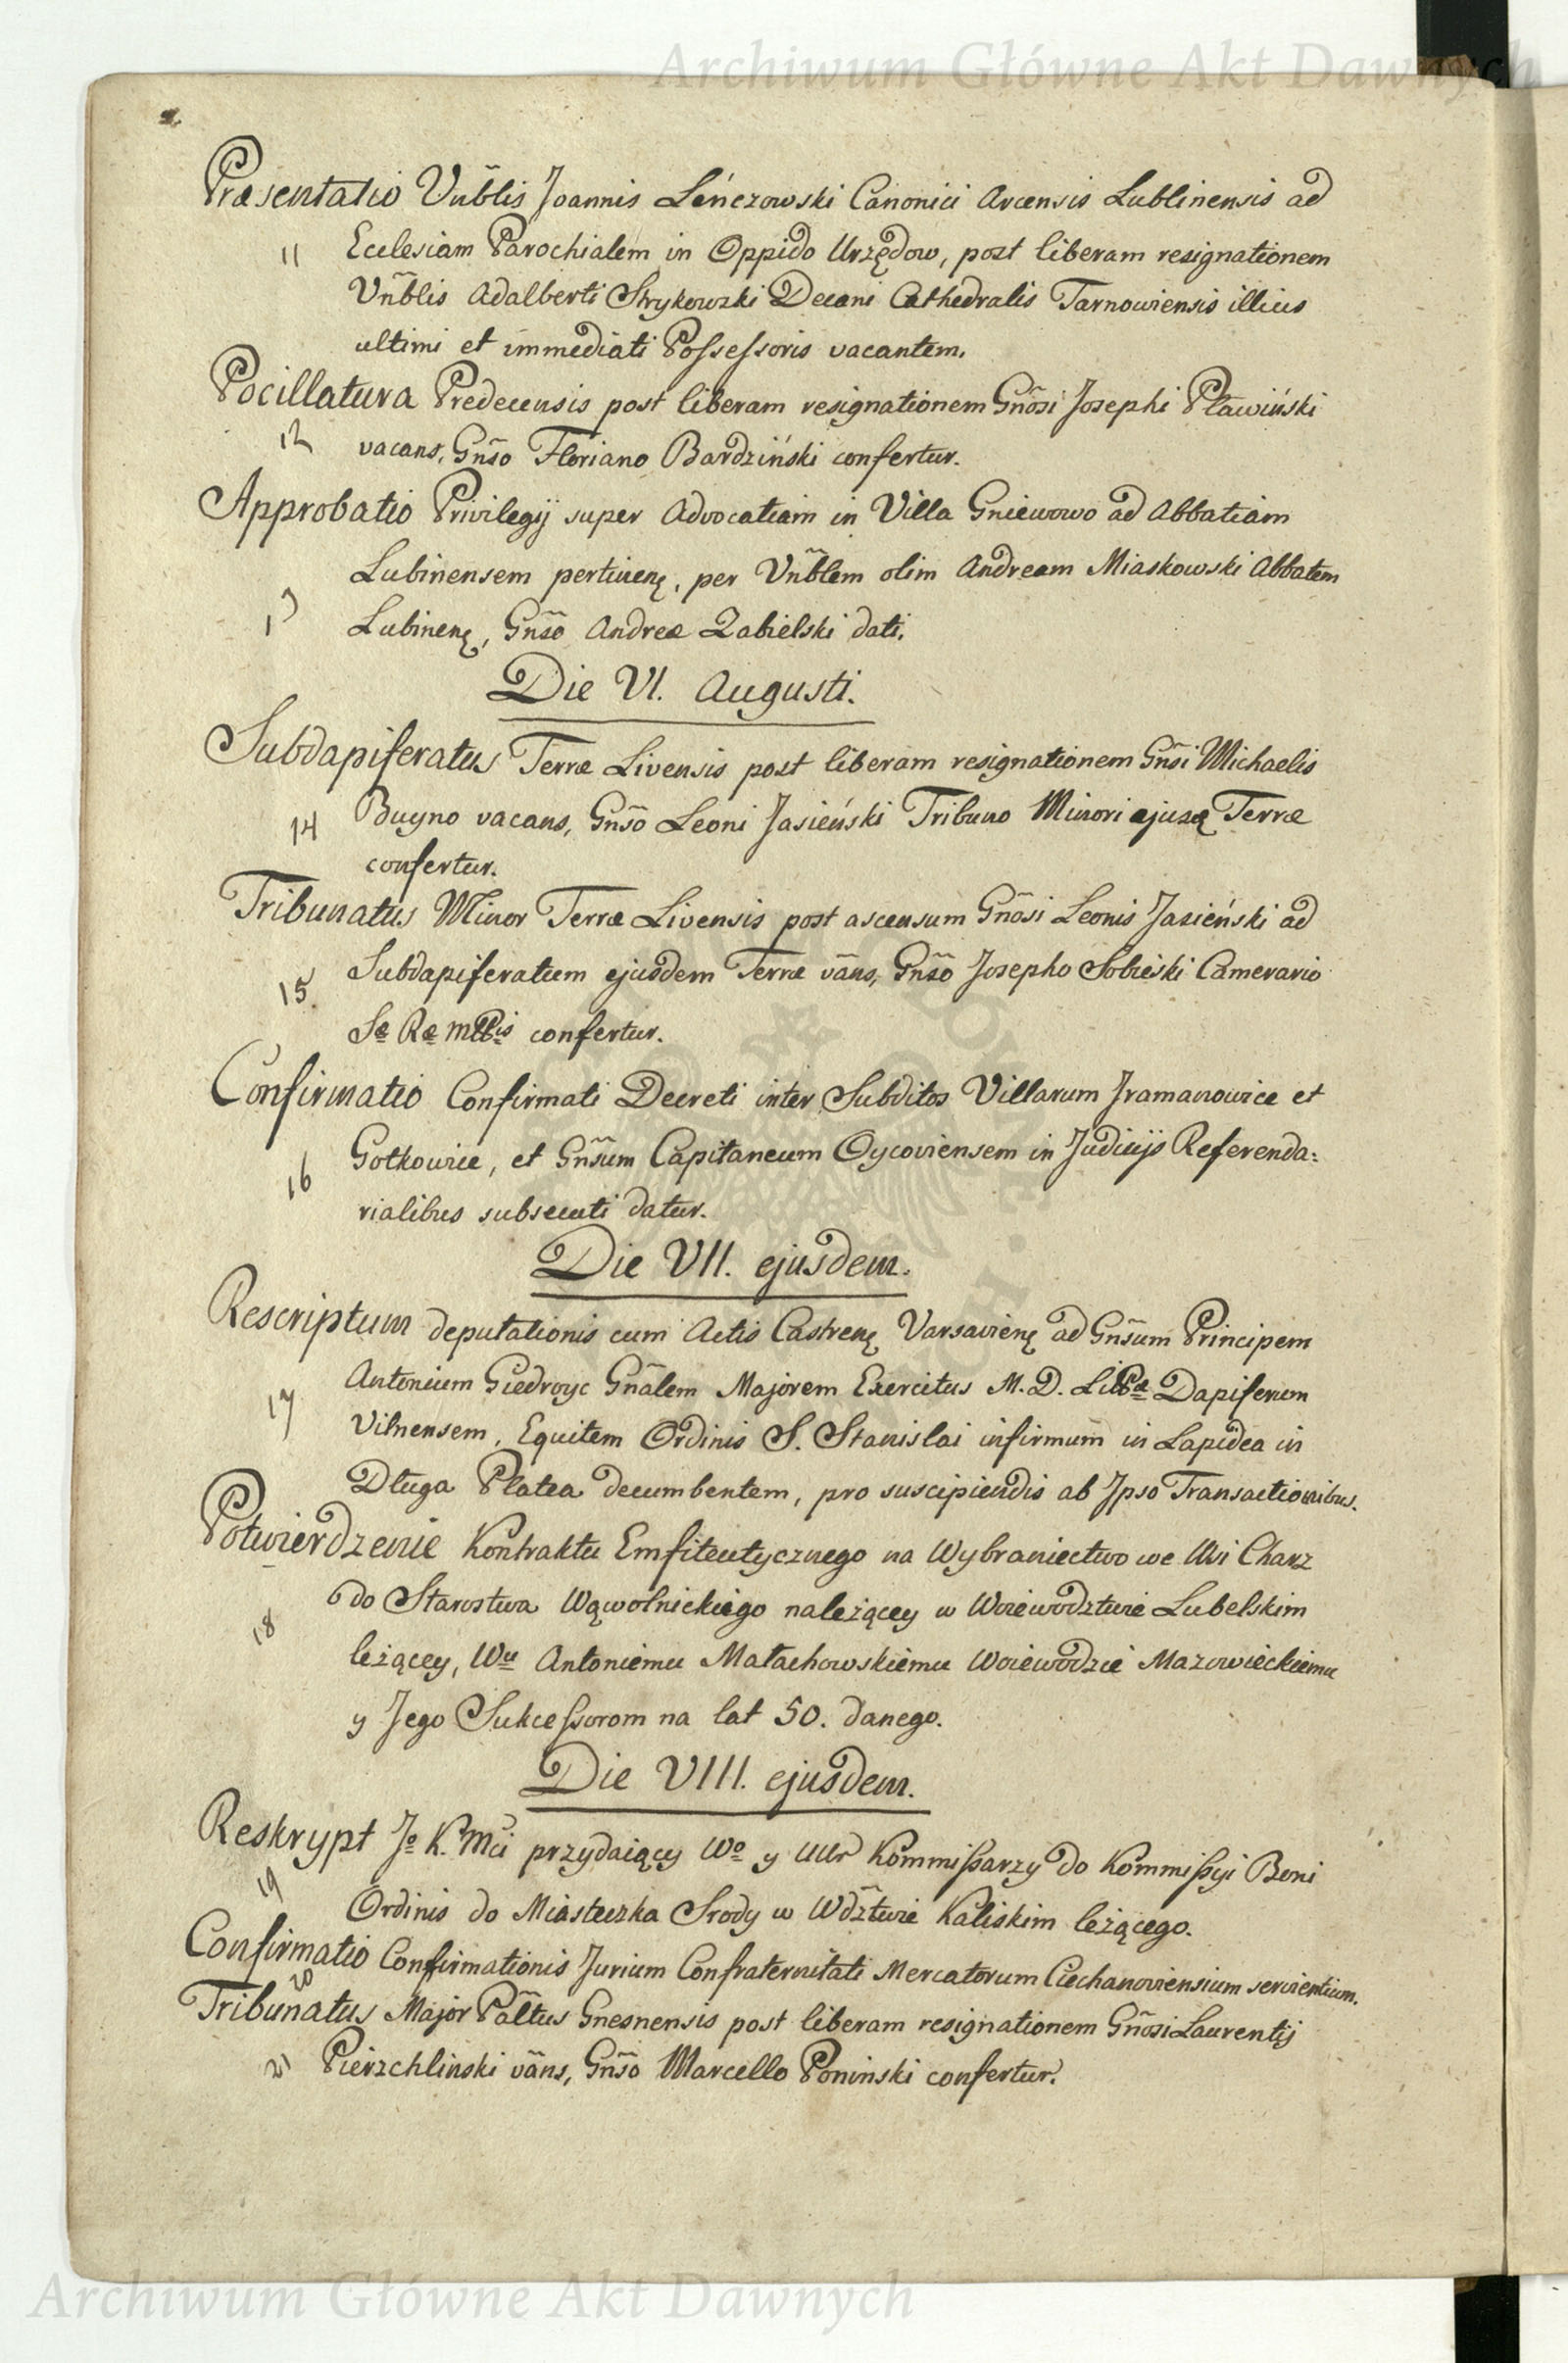 Archiwum Główne Akt Dawnych
2.
Præsentatio Vn̄blis Joannis Leńczowski Canonici Arcensis Lublinensis ad
11 Ecclesiam Parochialem in Oppido Urzędow, post liberam resignationem
Vn̄blis Adalberti Strykowski Decani Cathedralis Tarnoviensis illius
ultimi et immediati Possessoris vacantem.
Pocillatura Predecensis post liberam resignationem Gn̄osi Josephi Pławiński
12 vacans, Gn̄so Floriano Bardziński confertur.
Approbatio Privilegij super Advocatiam in Villa Gniewowo ad Abbatiam
Lubinensem pertinenę, per Vn̄blem olim Andream Miaskowski Abbatem
13 Lubinenę, Gn̄so Andreæ Zabielski dati.
Die VI. Augusti.
Subdapiferatus Terræ Livensis post liberam resignationem Gn̄si Michaelis
14 Buyno vacans, Gn̄so Leoni Jasieński Tribuno Minori ejusą Terræ
confertur.
Tribunatus Minor Terræ Livensis post ascensum Gn̄osi Leonis Jasieński ad
15. Subdapiferatum ejusdem Terræ vāns, Gn̄so Josepho Sobieski Camerario
Sæ Ræ Mttis confertur.
Confirmatio Confirmati Decreti inter Subditos Villarum Jramanowice et
16 Gotkowice, et Gn̄sum Capitaneum Oycoviensem in Judicijs Referenda:
rialibus subsecuti datur.
Die VII. ejusdem.
Rescriptum deputationis cum Actis Castrenę Varsavienę ad Gn̄sum Principem
17 Antonium Giedroyc Gn̄alem Majorem Exercitus M. D. Litt͞æ Dapiferum
Vilnensem, Equitem Ordinis S. Stanislai infirmum in Lapidea in
Długa Platea decumbentem, pro suscipiendis ab Jpso Transactionibus.
Potwierdzenie Kontraktu Emfiteutycznego na Wybraniectwo we Wsi Charz
18 do Starostwa Wąwolnickiego należącey w Woiewodztwie Lubelskim
leżącey, Wu Antoniemu Małachowskiemu Woiewodzie Mazowieckiemu
y Jego Sukcessorom na lat 50. danego.
Die VIII. ejusdem.
Reskrypt Jo K. Mci przydaiący Wo y Ur Kommissarzy do Kommissyi Boni
19 Ordinis do Miasteczka Srody w Wdz̄twie Kaliskim leżącego.
Confirmatio Confirmationis Jurium Confraternitati Mercatorum Ciechanoviensium servientium.
20
Tribunatus Major Pāltus Gnesnensis post liberam resignationem Gn̄osi Laurentij
21 Pierzchlinski vāns, Gn̄so Marcello Poninski confertur.
Archiwum Główne Akt Dawnych